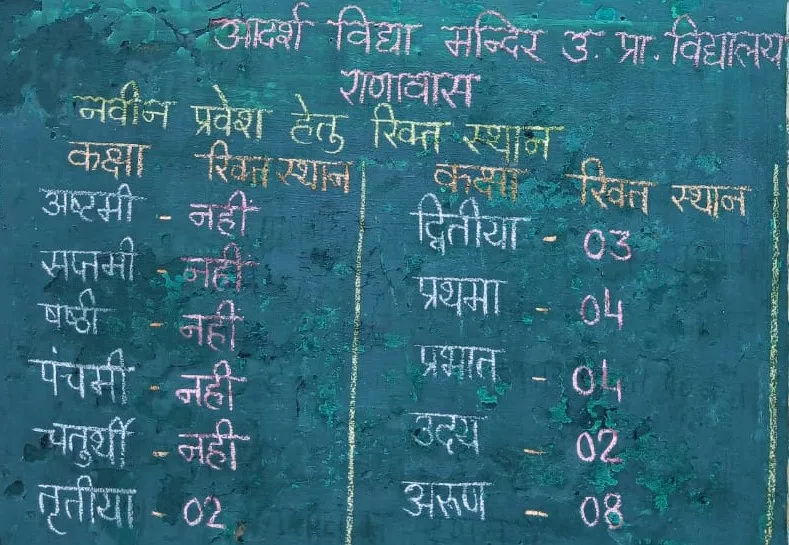 आदर्श विद्या मन्दिर उ. प्रा. विद्यालय
राणावास
नवीन प्रवेश हेतु रिक्त स्थान
कक्षा रिक्त स्थान
अष्टमी - नहीं
सप्तमी - नहीं
षष्ठी - नहीं
पंचमी - नहीं
चतुर्थी - नहीं
तृतीया - 02
कक्षा रिक्त स्थान
द्वितीया - 03
प्रथमा - 04
प्रभात - 04
उदय - 02
अरूण - 08